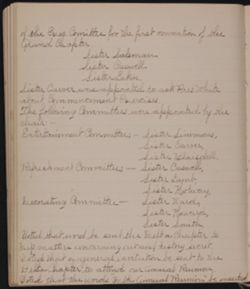 of the Exec. Committee for the first convention of the
Grand Chapter
Sister Salsman
Sister Caswell
Sister Lakin
Sister Carver was appointed to ask Pres White
about Commencement Exercises
The following Committees were appointed by the
chair —
Entertainment Committee — Sister Simmons,
Sister Carver,
Sister
Refreshment Committee — Sister Caswell,
Sister Lamb,
Sister
Decorating Committee — Sister Ward,
Sister
Sister South,
Voted that word be sent the Delta Chapter to
keep matters concerning our society secret.
Voted that a general invitation be sent to the
Chapter to attend our annual Reunion.
Voted that the words to the Annual Reunion be